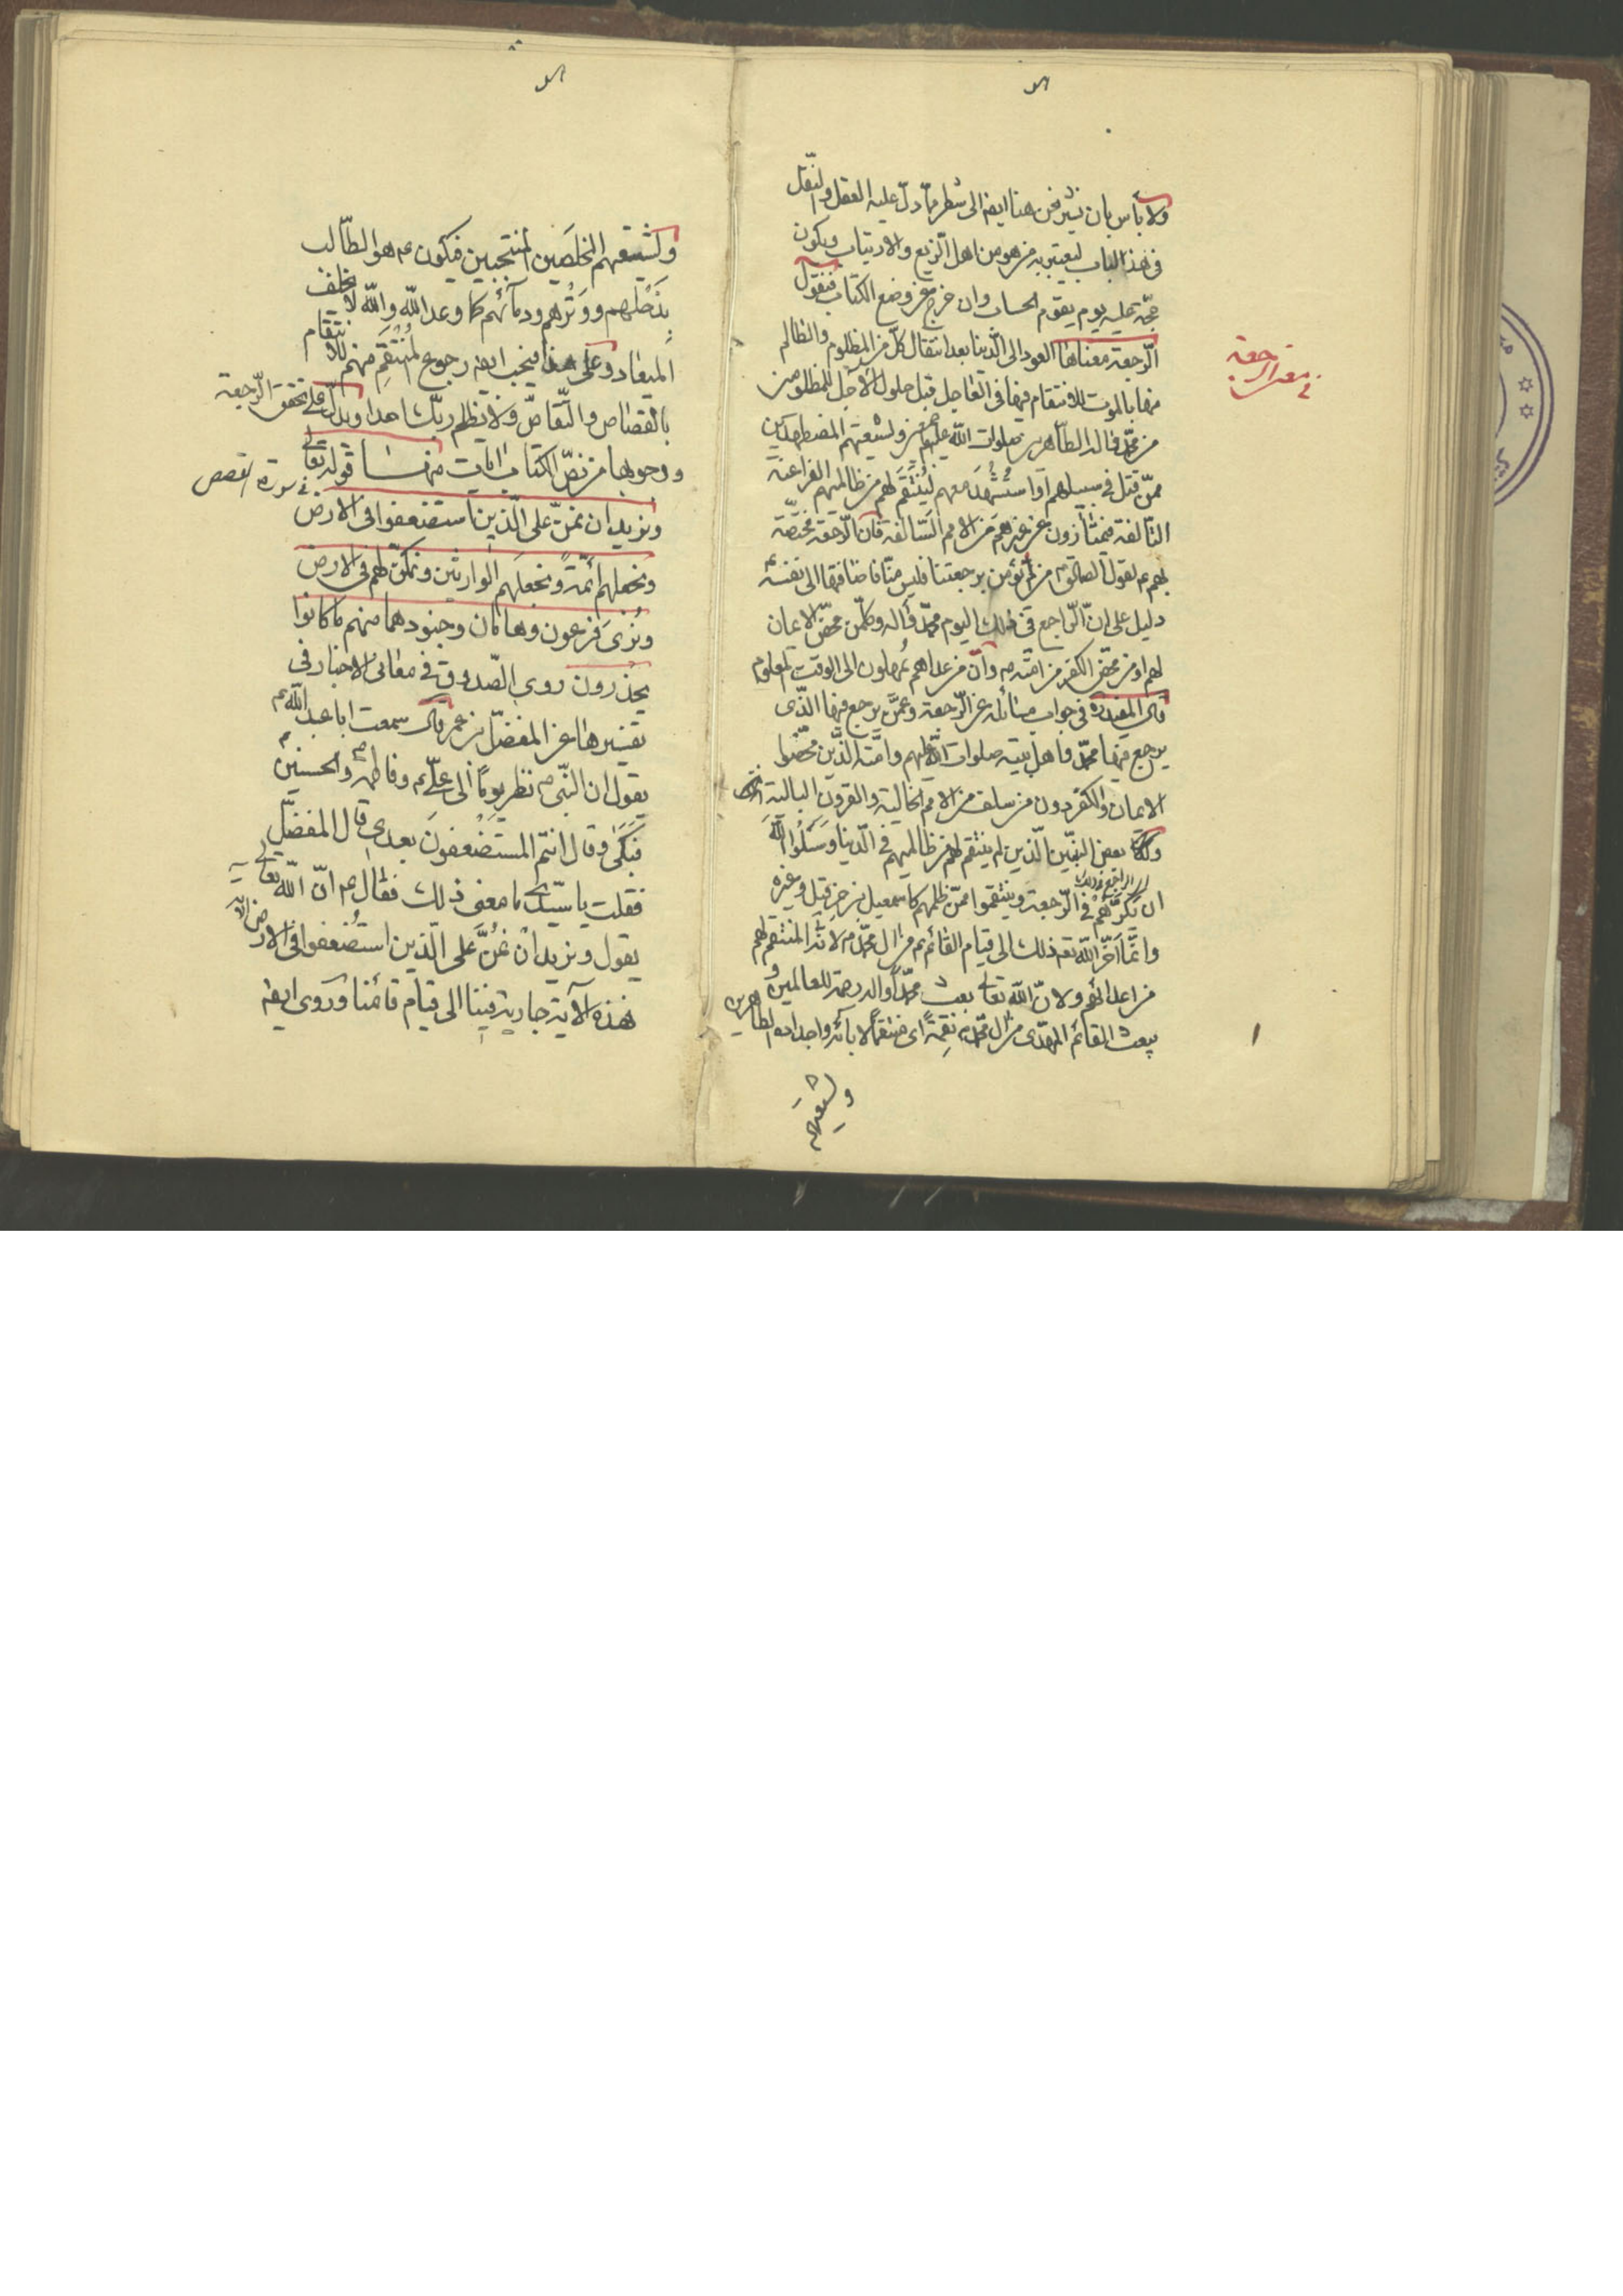 ولا بأس بان نشير نحن هنا ايضا الى شطر ممّا دلّ عليه العقل والنّقل
فى هذا الباب ليعتبر به من هو من اهل الزّيغ والارتياب ويكون
حجّة عليه يوم يقوم الحساب وان خرج عن وضع الكتاب فنقول
الرّجعة معناها العود الى الدّنيا بعد انتقال كلّ من المظلوم والظالم
منها بالموت للانتقام فيها فى العاجل قبل حلول الاجل للمظلومين
من محمّد واله الطّاهرين صلوات الله عليهم ولشيعتهم المضطهدين
ممّن قتل فى سبيلهم او استُشهدَ معهم ليُنتَقَم لهم من ظالميهم الفراعنة
عن غيرهم من الامم السّالفة فانّ الرّجعة مختصّة
بهم ع لقول الصادق ع من لم يؤمن برجعتنا فليس منّا فاضافها الى نفسه
دليل على انّ الرّاجع فى ذلك اليوم محمّد واله وكلّ من محّض الايمان
لهم او من محّض الكفر من امّته ص وانّ من عداهم مُمهلون الى الوقت المعلوم
قال المفيد ره فى جواب مسائله عن الرّجعة وعمّن يرجع فيها الذى
يرجع فيها محمّد واهل بيته صلوات الله عليهم وامّته الذين محّضوا
الايمان والكفر دون من سلف من الامم الخالية والقرون البالية
بعض النبيّين الّذين لم ينتقم لهم من ظالميهم فى الدّنيا وسَئَلُوا اللّه
ان يكرّهم فى الرّجعة وينتقموا ممّن ظلمهم كاسمعيل بن حزقيل وغيره
وانّما اخّر اللّه ذلك الى قيام القائم ع من ال محمّد ص لانّه المنتقم لهم
من اعدائهم ولانّ اللّه تعالى بعث محمّدًا واله رحمة للعالمين و
يبعث القائم المهدى من ال محمّد ع نِقمةً اى منتقمًا لابائه واجداده الطّاهرين
ولشيعته
معنى الرجعة
ولشيعتهم المخلَصين المنتجبين فيكون ع هو الطّالب
بذَحلهم ووَترهم ودمائهم كما وعد اللّه واللّه لا يخلف
الميعاد وعلى هذا فيجب ايضا رجوع المُنتقَم منهم للانتقام
بالقصاص والتّقاصّ ولا يظلم ربّك احدا ويدلّ على تحقق الرّجعة
ووجوبها من نصّ الكتاب ايات منها قوله تعالى
فى سورة القصص
ونريد ان نمنّ على الّذين استضعفوا فى الارض
ونجعلهم ائمّةً ونجعلهم الوارثين ونمكّن لهم فى الارض
ونُرِىَ فرعون وهامان وجنودهما منهم ما كانوا
يحذرون روى الصّدوق فى معانى الاخبار فى
تفسيرها عن المفضّل بن عمر قال سمعت ابا عبد اللّه ع
يقول ان النبّى ص نظر يومًا الى علىّ ع وفاطمة والحسنين ع
فبكى وقال انتم المستضعفون بعدى قال المفضّل
فقلت يا سيّدى ما معنى ذلك فقال ع انّ اللّه تعالى
يقول ونريد ان نمُنَّ على الّذين استُضعفوا فى الارض الآية
فهذه الآية جارية فينا الى قيام قائمنا وروى ايضا